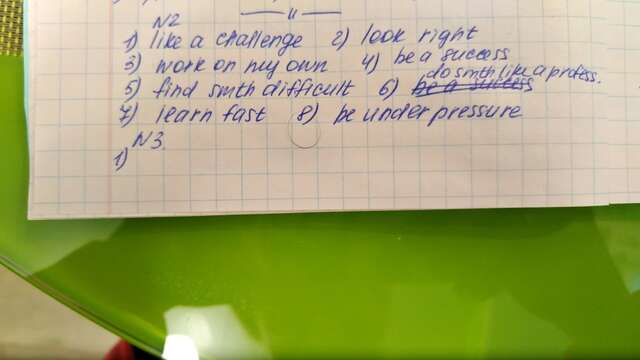 — " —
N2
1) like a challenge 2) look right
3) work on my own 4) be a success
5) find smth difficult 6) be a success do smth like a profess.
7) learn fast 8) be under pressure
N3
1)